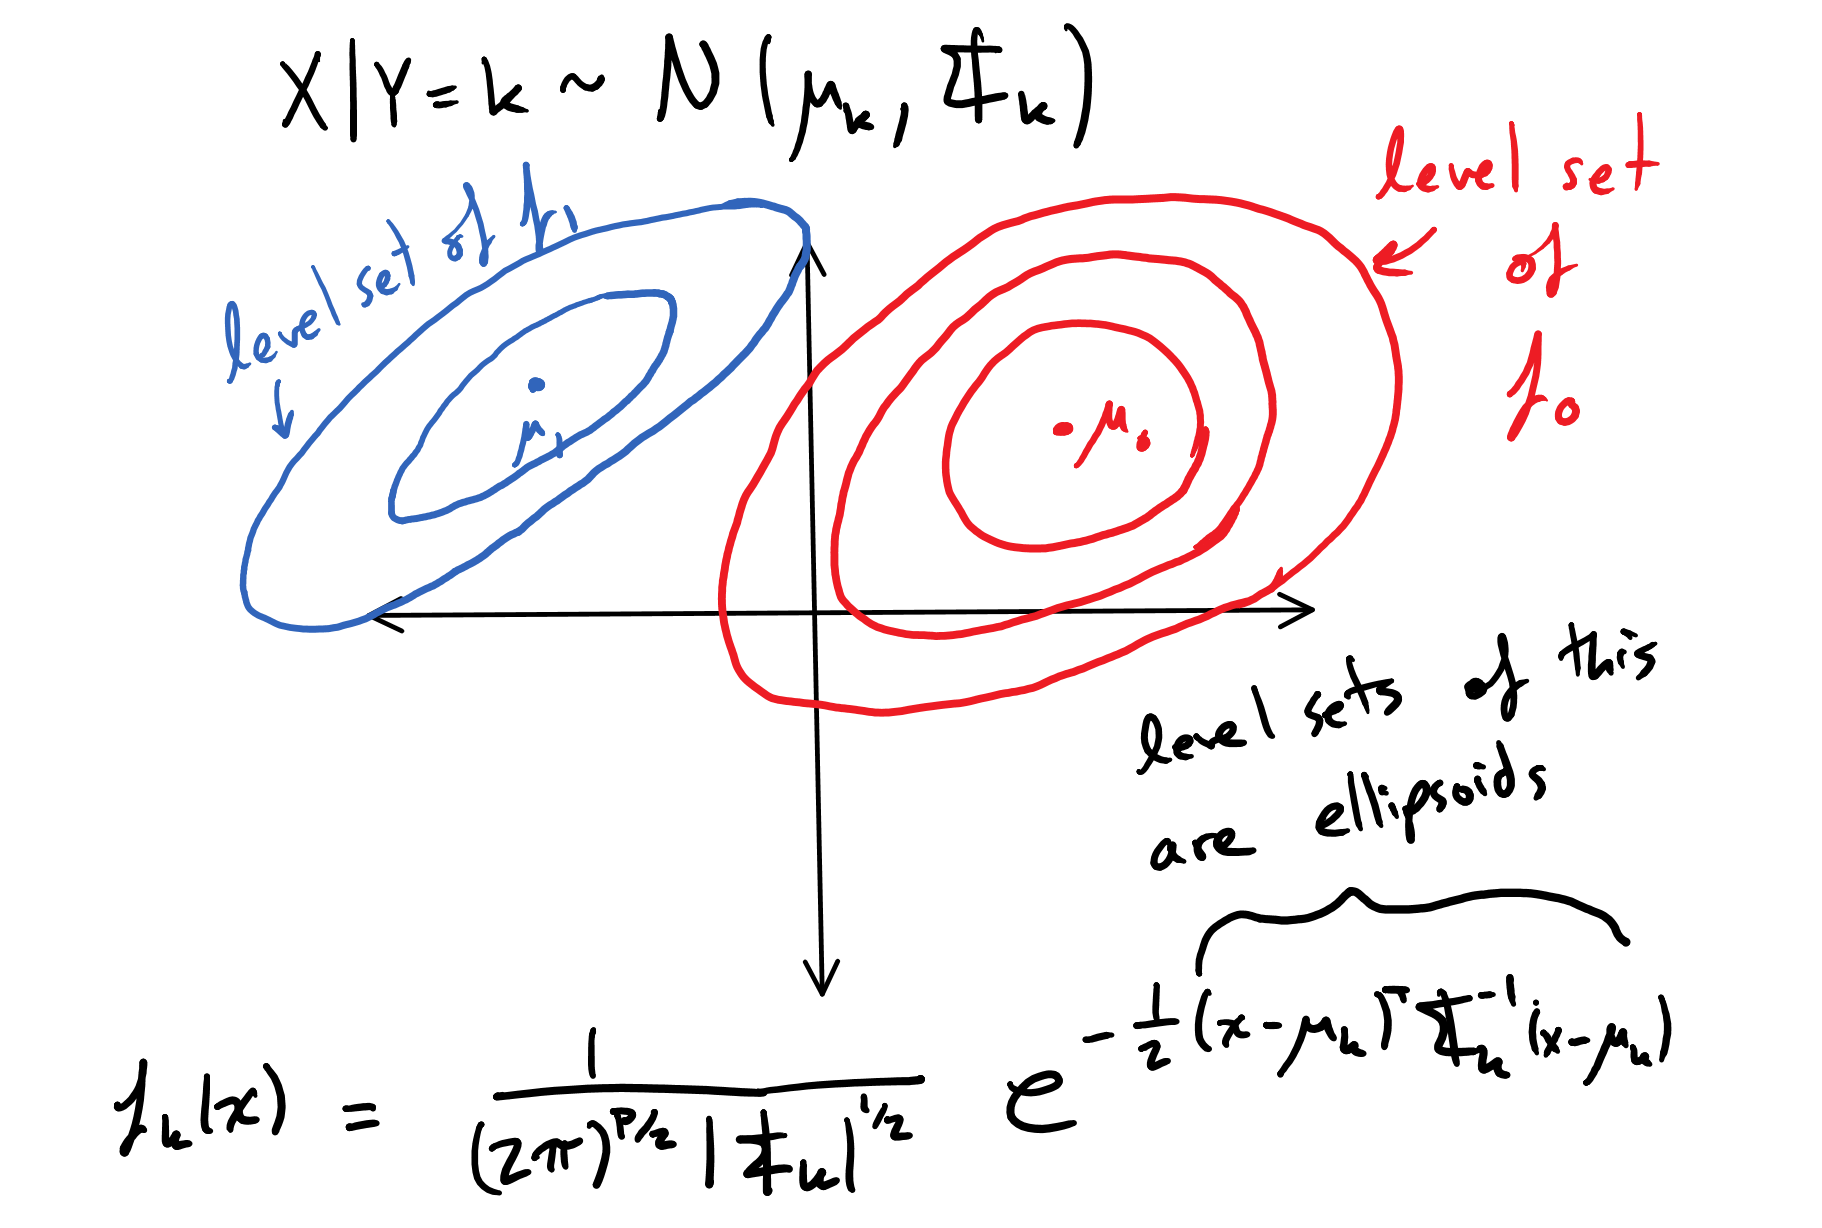 X|Y=k ~ N(μₖ, Σₖ)
level set of f₁
μ₁
level set
of
f₀
μ₀
level sets of this
are ellipsoids
fₖ(x) = 1 / ((2π)^{p/2} |Σₖ|^{1/2}) e^{-1/2 (x-μₖ)^T Σₖ^{-1} (x-μₖ)}